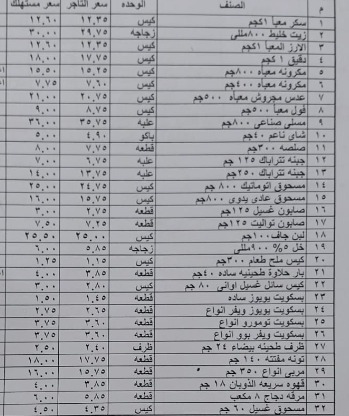 م الصنف الوحده سعر التاجر سعر مستهلك
١ سكر معبأ ١كجم كيس ١٢,٣٥ ١٢,٦٠
٢ زيت خليط ٨٠٠مللى زجاجه ٢٩,٧٥ ٣٠,٠٠
٣ الارز المعبأ ١كجم كيس ١٢,٣٥ ١٢,٦٠
٤ دقيق ١ كجم كيس ١٧,٧٥ ١٨,٠٠
٥ مكرونه معبأه ٨٠٠جم كيس ١٥,٢٥ ١٥,٥٠
٦ مكرونه معبأه ٤٠٠جم كيس ٧,٦٠ ٧,٧٥
٧ عدس مجروش معبأه ٥٠٠جم كيس ٢٠,٧٥ ٢١,٠٠
٨ فول معبأ ٥٠٠جم كيس ٨,٧٥ ٩,٠٠
٩ مسلى صناعى ٨٠٠جم علبه ٣٥,٧٥ ٣٦,٠٠
١٠ شاى ناعم ٤٠جم باكو ٤,٩٠ ٥,٠٠
١١ صلصه ٣٠٠جم قطعه ٧,٧٥ ٨,٠٠
١٢ جبنه تتراباك ١٢٥ جم علبه ٦,٧٥ ٧,٠٠
١٣ جبنه تتراباك ٢٥٠جم علبه ١٣,٧٥ ١٤,٠٠
١٤ مسحوق اتوماتيك ٨٠٠ جم كيس ٢٤,٧٥ ٢٥,٠٠
١٥ مسحوق عادى يدوى ٨٠٠جم كيس ١٥,٧٥ ١٦,٠٠
١٦ صابون غسيل ١٢٥جم قطعه ٢,٧٥ ٣,٠٠
١٧ صابون تواليت ١٢٥جم قطعه ٧,٢٥ ٧,٥٠
١٨ لبن جاف ١٠٠جم كيس ٢٥,٠٠ ٢٥,٥٠
١٩ خل ٥% ٩٠٠مللى زجاجه ٥,٨٥ ٦,٠٠
٢٠ كيس ملح طعام ٣٠٠جم كيس ١,١٥ ١,٢٥
٢١ بار حلاوة طحينيه ساده ٤٠جم قطعه ٣,٨٥ ٤,٠٠
٢٢ كيس سائل غسيل اوانى ٨٠ جم كيس ٢,٨٠ ٣,٠٠
٢٣ بسكويت بويوز ساده قطعه ١,٤٥ ١,٥٠
٢٤ بسكويت بويوز ويفر انواع قطعه ٢,٦٥ ٢,٧٥
٢٥ بسكويت تومورو انواع قطعه ٣,٦٠ ٣,٧٥
٢٦ بسكويت ويفر بوو انواع قطعه ٣,٦٠ ٣,٧٥
٢٧ ظرف طحينه بيضاء ٢٤ جم ظرف ٢,٤٠ ٢,٥٠
٢٨ تونه مفتته ١٤٠ جم قطعه ١٧,٧٥ ١٨,٠٠
٢٩ مربى انواع ٣٥٠ جم قطعه ١٥,٧٥ ١٦,٠٠
٣٠ قهوه سريعه الذوبان ١٨ جم قطعه ٣,٨٥ ٤,٠٠
٣١ مرقه دجاج ٨ مكعب قطعه ٥,٨٥ ٦,٠٠
٣٢ مسحوق غسيل ٦٠ جم كيس ٤,٣٥ ٤,٥٠